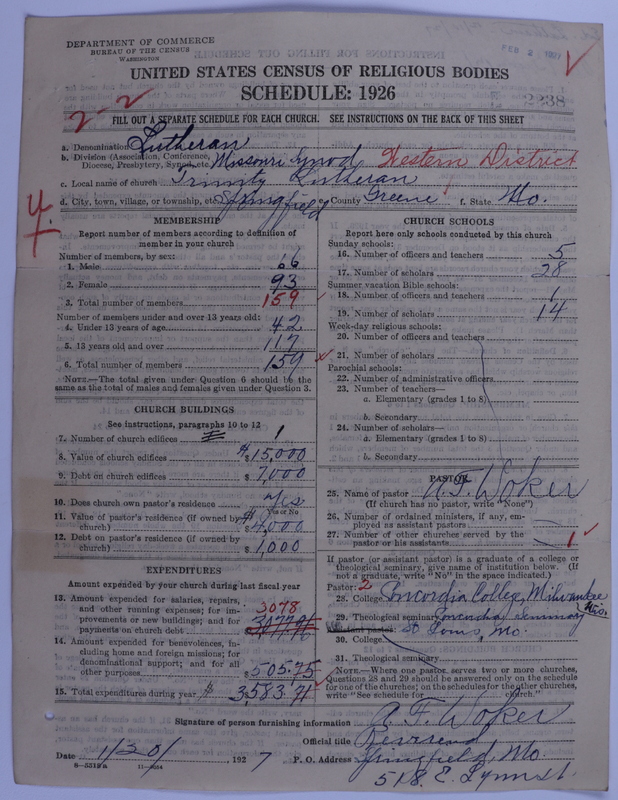 DEPARTMENT OF COMMERCE
BUREAU OF THE CENSUS
WASHINGTON
FEB 2 1927
UNITED STATES CENSUS OF RELIGIOUS BODIES
SCHEDULE: 1926
2-2
FILL OUT A SEPARATE SCHEDULE FOR EACH CHURCH. SEE INSTRUCTIONS ON THE BACK OF THIS SHEET
a. Denomination Lutheran
b. Division (Association, Conference, Diocese, Presbytery, Synod, etc. Missouri Synod Western District
c. Local name of church Trinity Lutheran
d. City, town, village, or township, etc. Springfield County Greene f. State Mo.
MEMBERSHIP
Report number of members according to definition of
member in your church
Number of members, by sex:
1. Male 66
2. Female 93
3. Total number of members 159
Number of members under and over 13 years old:
4. Under 13 years of age 42
5. 13 years old and over 117
6. Total number of members 159
NOTE.—The total given under Question 6 should be the
same as the total of males and females given under Question 3.
CHURCH BUILDINGS
See instructions, paragraphs 10 to 12
7. Number of church edifices 1
8. Value of church edifices $15,000
9. Debt on church edifices $7,000
10. Does church own pastor's residence Yes
Yes or No
11. Value of pastor's residence (if owned by
church) $4,000
12. Debt on pastor's residence (if owned by
church) $1,000
EXPENDITURES
Amount expended by your church during last fiscal year
13. Amount expended for salaries, repairs,
and other running expenses; for im- 3078
provements or new buildings; and for
payments on church debt 3077.96
14. Amount expended for benevolences, in-
cluding home and foreign missions; for
denominational support; and for all
other purposes $505.75
15. Total expenditures during year $3,583.71
CHURCH SCHOOLS
Report here only schools conducted by this church
Sunday schools:
16. Number of officers and teachers 5
17. Number of scholars 28
Summer vacation Bible schools:
18. Number of officers and teachers 1
19. Number of scholars 14
Week-day religious schools:
20. Number of officers and teachers
21. Number of scholars
Parochial schools:
22. Number of administrative officers
23. Number of teachers—
a. Elementary (grades 1 to 8)
b. Secondary
24. Number of scholars—
a. Elementary (grades 1 to 8)
b. Secondary
PASTOR
25. Name of pastor A. F. Woker
(If church has no pastor, write "None")
26. Number of ordained ministers, if any, em-
ployed as assistant pastors
27. Number of other churches served by the
pastor or his assistants 1
If pastor (or assistant pastor) is a graduate of a college or
theological seminary, give name of institution below. (If
not a graduate, write "No" in the space indicated.)
Pastor: 2
28. College Concordia College, Milwaukee Wis.
29. Theological seminary Concordia Seminary
Assistant pastor: St. Louis, Mo.
30. College
31. Theological seminary
NOTE.—Where one pastor serves two or more churches,
Questions 28 and 29 should be answered only on the schedule
for one of the churches; on the schedules for the other churches,
write "See schedule for church."
Signature of person furnishing information A. F. Woker
Official title Reverend
Date 1/30/ 1927 P. O. Address Springfield, Mo.
8-5312a 11-9024 518 E. Lynn St.